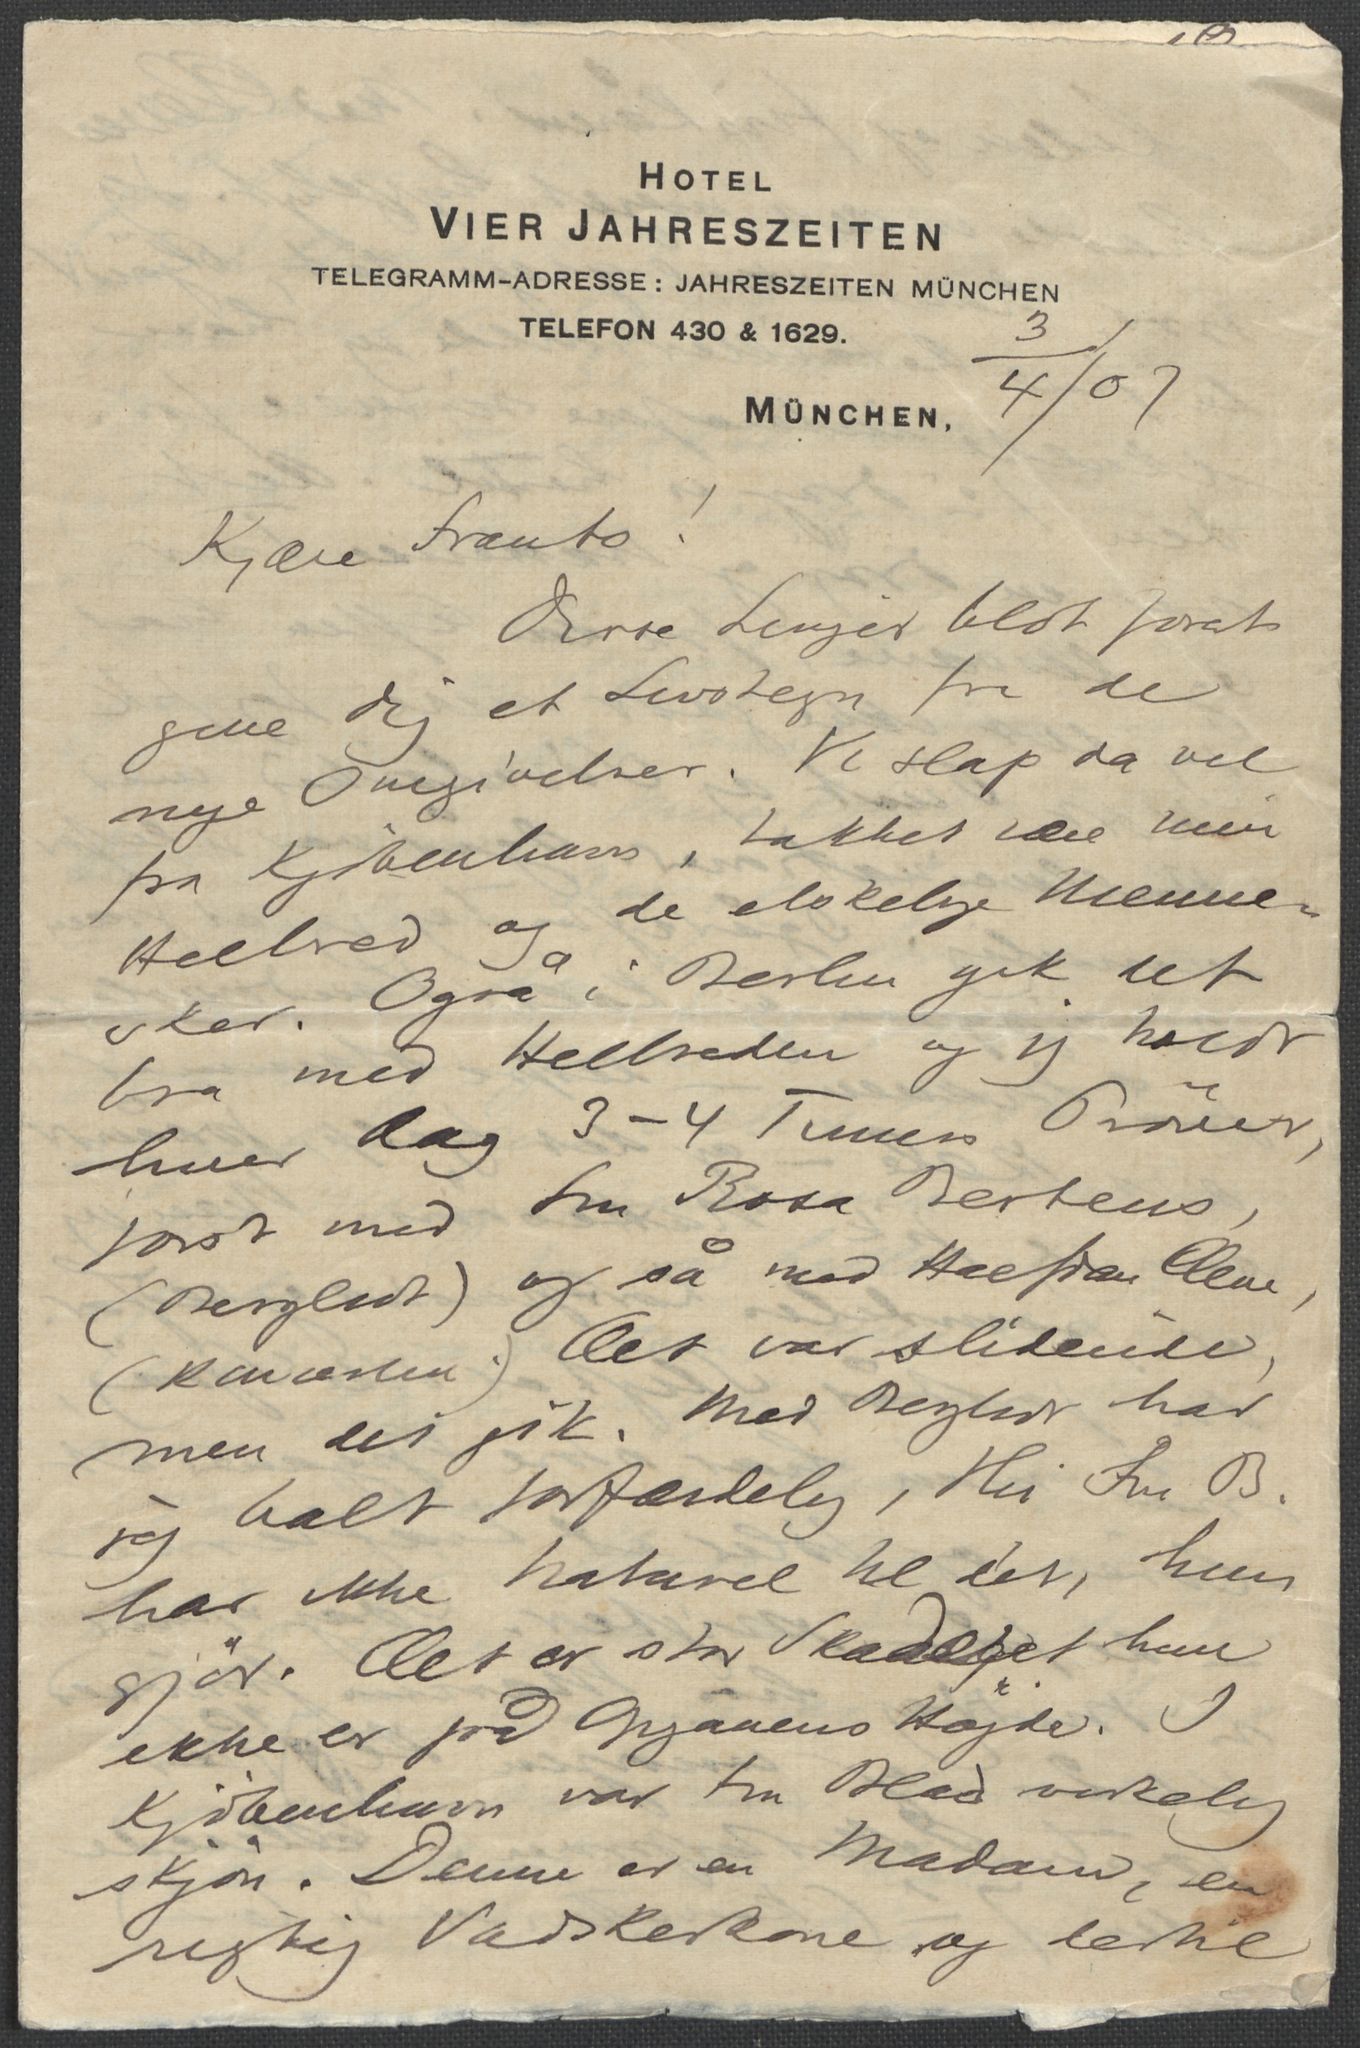 HOTEL
VIER JAHRESZEITEN
TELEGRAMM-ADRESSE: JAHRESZEITEN MÜNCHEN
TELEFON 430 & 1629.
MÜNCHEN, 3/4/07
Kjære Frants!
Disse Linjer blot forat
give dig et Livstegn fra de
nye Omgivelser. Vi slap da vel
fra Kjöbenhavn, takket være min
Helbred og de elskelige Menne-
sker. Også i Berlin gik det
bra med Helbreden og jeg holdt
hver Dag 3-4 Timers Pröver,
först med Fru Rosa Bertens,
(Bergliot) og så med Halfdan Cleve,
(Koncerten). Det var slidende,
men det gik. Med Bergliot har
jeg halt forfærdelig, thi Fru B.
har ikke Naturel til det, hun
gjör. Det er stor Skade at hun
ikke er på Opgavens Højde. I
Kjöbenhavn var Fru Blad virkelig
skjön. Denne er en Madam, en
rigtig Vadskerkone og dertil